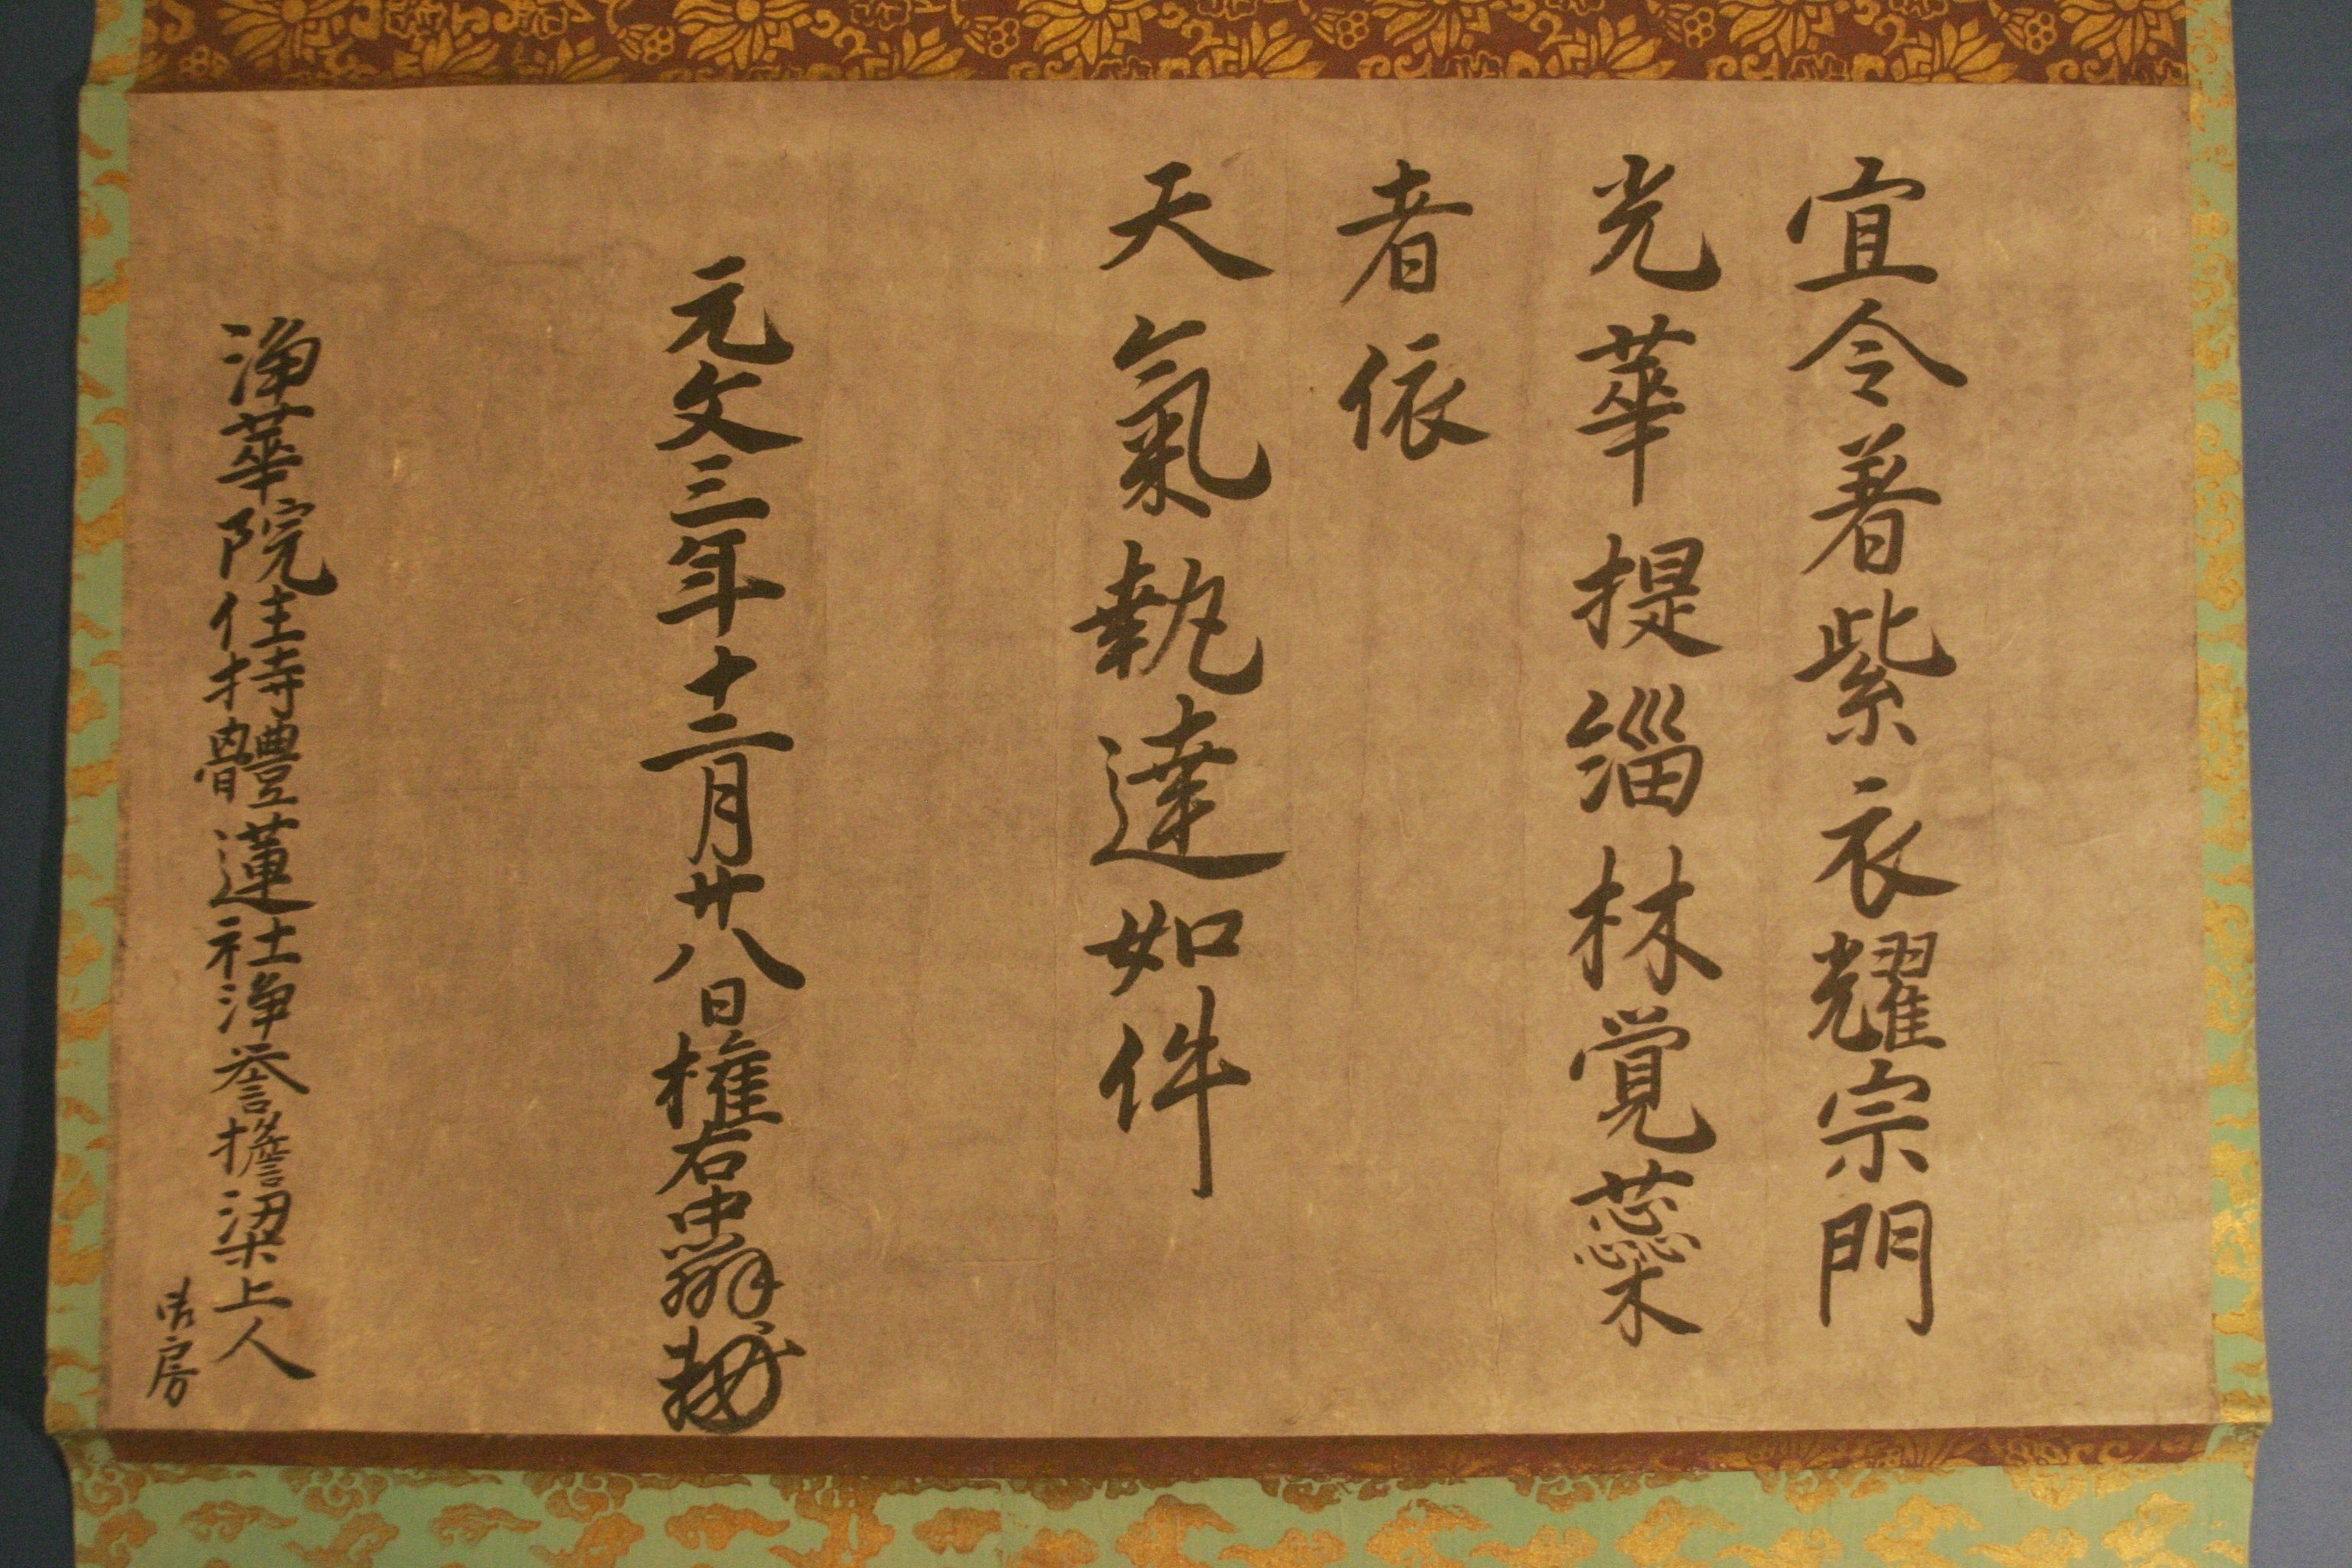 宜令著紫衣耀宗門
光華提緇林覚蘂
者依
天氣執達如件
元文三年十二月廿八日権右中辨
浄華院住持體蓮社浄誉擔梁上人
房